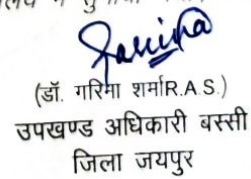 Garima
(डॉ. गरिमा शर्माR.A.S.)
उपखण्ड अधिकारी बस्सी
जिला जयपुर